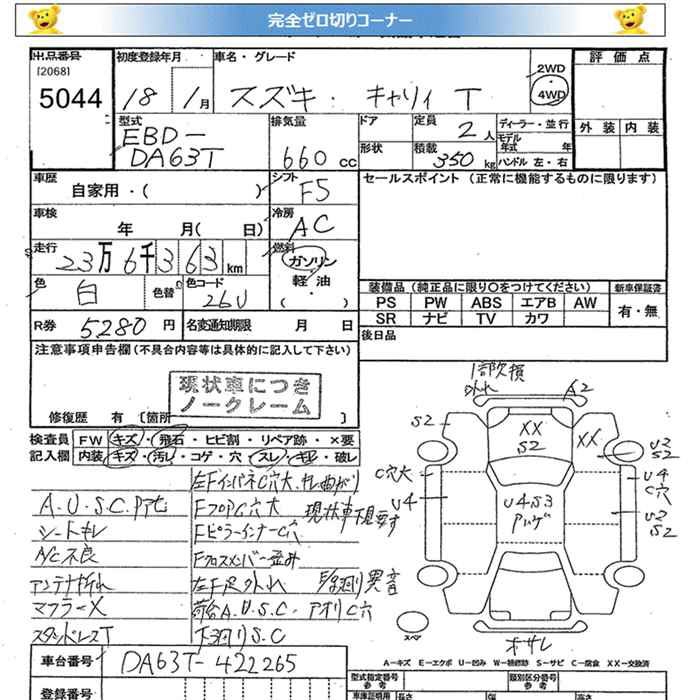 完全ゼロ切りコーナー
出品番号 初度登録年月 車名・グレード 2WD 評価点
[2068] 5044 18 1月 スズキ・キャリィ T 4WD
型式 排気量 ドア 定員 2人 ディーラー・並行 外装 内装
EBD- モデル年式 年
DA63T 660cc 形状 積載 350kg ハンドル 左・右
車歴 シフト セールスポイント (正常に機能するものに限ります)
自家用・( ) F5
車検 冷房
年 月( 日) AC
走行 燃料
23万6千363km ガソリン
色 色替 色コード 軽油 装備品 (純正品に限り○をつけてください) 新車保証書
白 26U ・( ) PS PW ABS エアB AW 有・無
SR ナビ TV カワ
R券 5280円 名変通知期限 月 日 後日品
注意事項申告欄(不具合内容等は具体的に記入して下さい)
現状車につき
ノークレーム
修復歴 有 [箇所 ]
検査員 FW キズ・飛石・ヒビ割・リペア跡・×要
記入欄 内装 キズ・汚し・コゲ・穴・スレ・キレ・破レ
左FインパネC穴大
A.U.S.C FフロアC穴大 現状車下見要す
シートキレ FピラーインナーC穴
A/C不良 Fクロスメンバー歪み
アンテナ折れ 左F足外れ F足廻り異音
マフラーX 荷台A.U.S.C・アオリC穴
スタッドレスT 下廻りS.C
1部欠損
外れ A2
XX
S2
XX
S2
U2
S2
C穴大
U4
U4
C穴
U4S3
U2
S2
スペア
A-キズ E-エクボ U-凹み W-補修跡 S-サビ C-腐食 XX-交換済
車台番号 DA63T-422265 型式指定番号 参考 類別区分番号 参考
登録番号 車庫証明用 長さ 幅 高さ